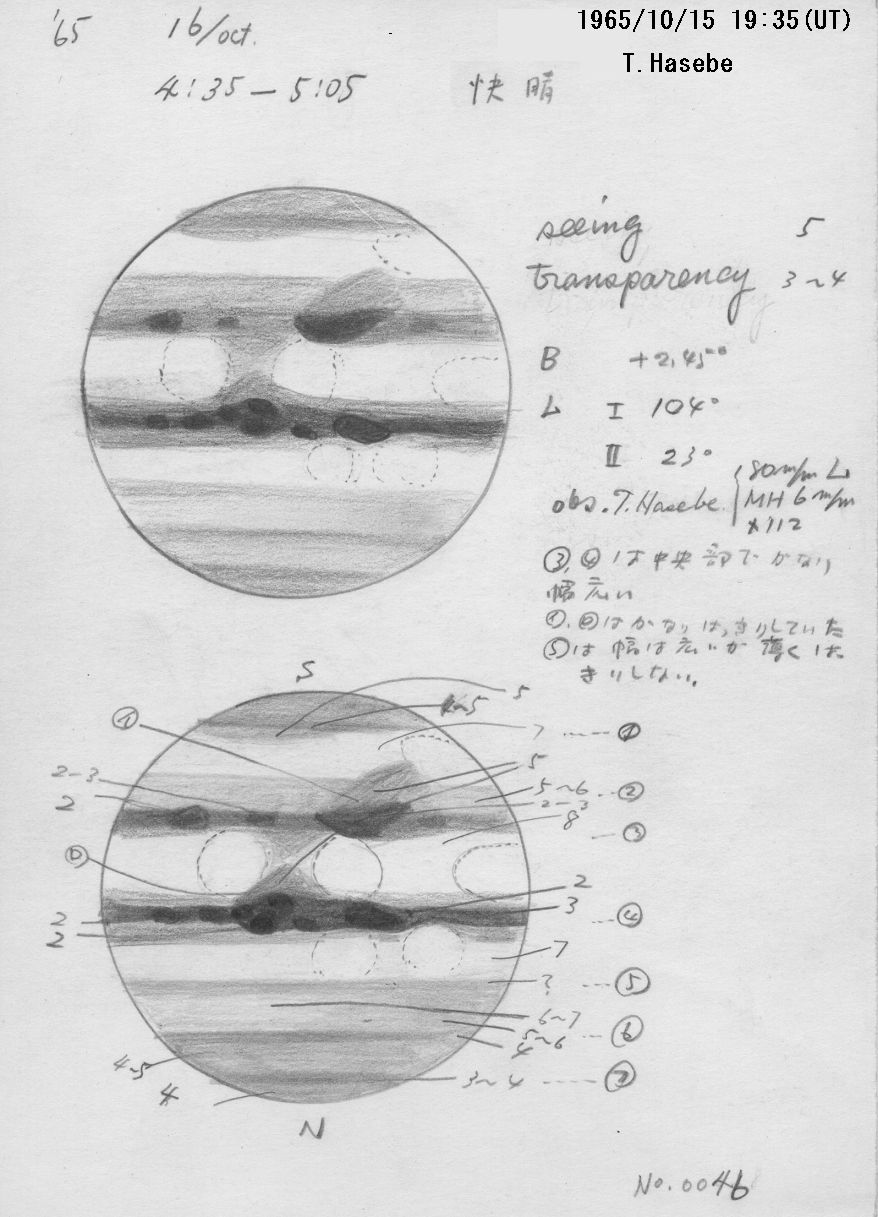 '65 16/oct.
1965/10/15 19:35(UT)
T.Hasebe
4:35 — 5:05 快晴
seeing 5
transparency 3~4
B +2.45°
L I 104°
II 23°
80m/m L
obs. T. Hasebe. MH 6m/m
×112
③,④は中央部でかなり
幅広い
①,②はかなりはっきりしていた
⑤は幅は広いが薄くはっ
きりしない。
S
5
4~5
7 ---- ①
5
2-3
5~6 --- ②
2
2-3
8 -- ③
2
3 --- ④
2
2
7
? --- ⑤
6~7
5~6 --- ⑥
4
4-5
3~4 ---- ⑦
4
N
No.0046